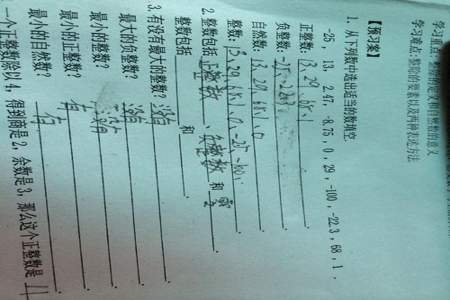 学习重点:整除的定义和自然数的意义
学习难点:整除的要素以及两种表述方法
【预习案】
1. 从下列数中选出适当的数填空
-25，13，2.47，-8.75，0，29，-100，-22.3，68，1，
正整数: 13, 29, 68, 1
负整数: -25, -100
自然数: 13, 29, 68, 1, 0
整数: 13, 29, 68, 1, 0, -25, -100
2. 整数包括 正整数 、负整数 和 零
整数包括 和
3. 有没有最大的整数? 没有
最大的负整数? 有
最小的整数? 没有
最小的正整数? 有
最小的自然数? 有
一个正整数除以4，得到商是2，余数是3，那么这个正整数是 11